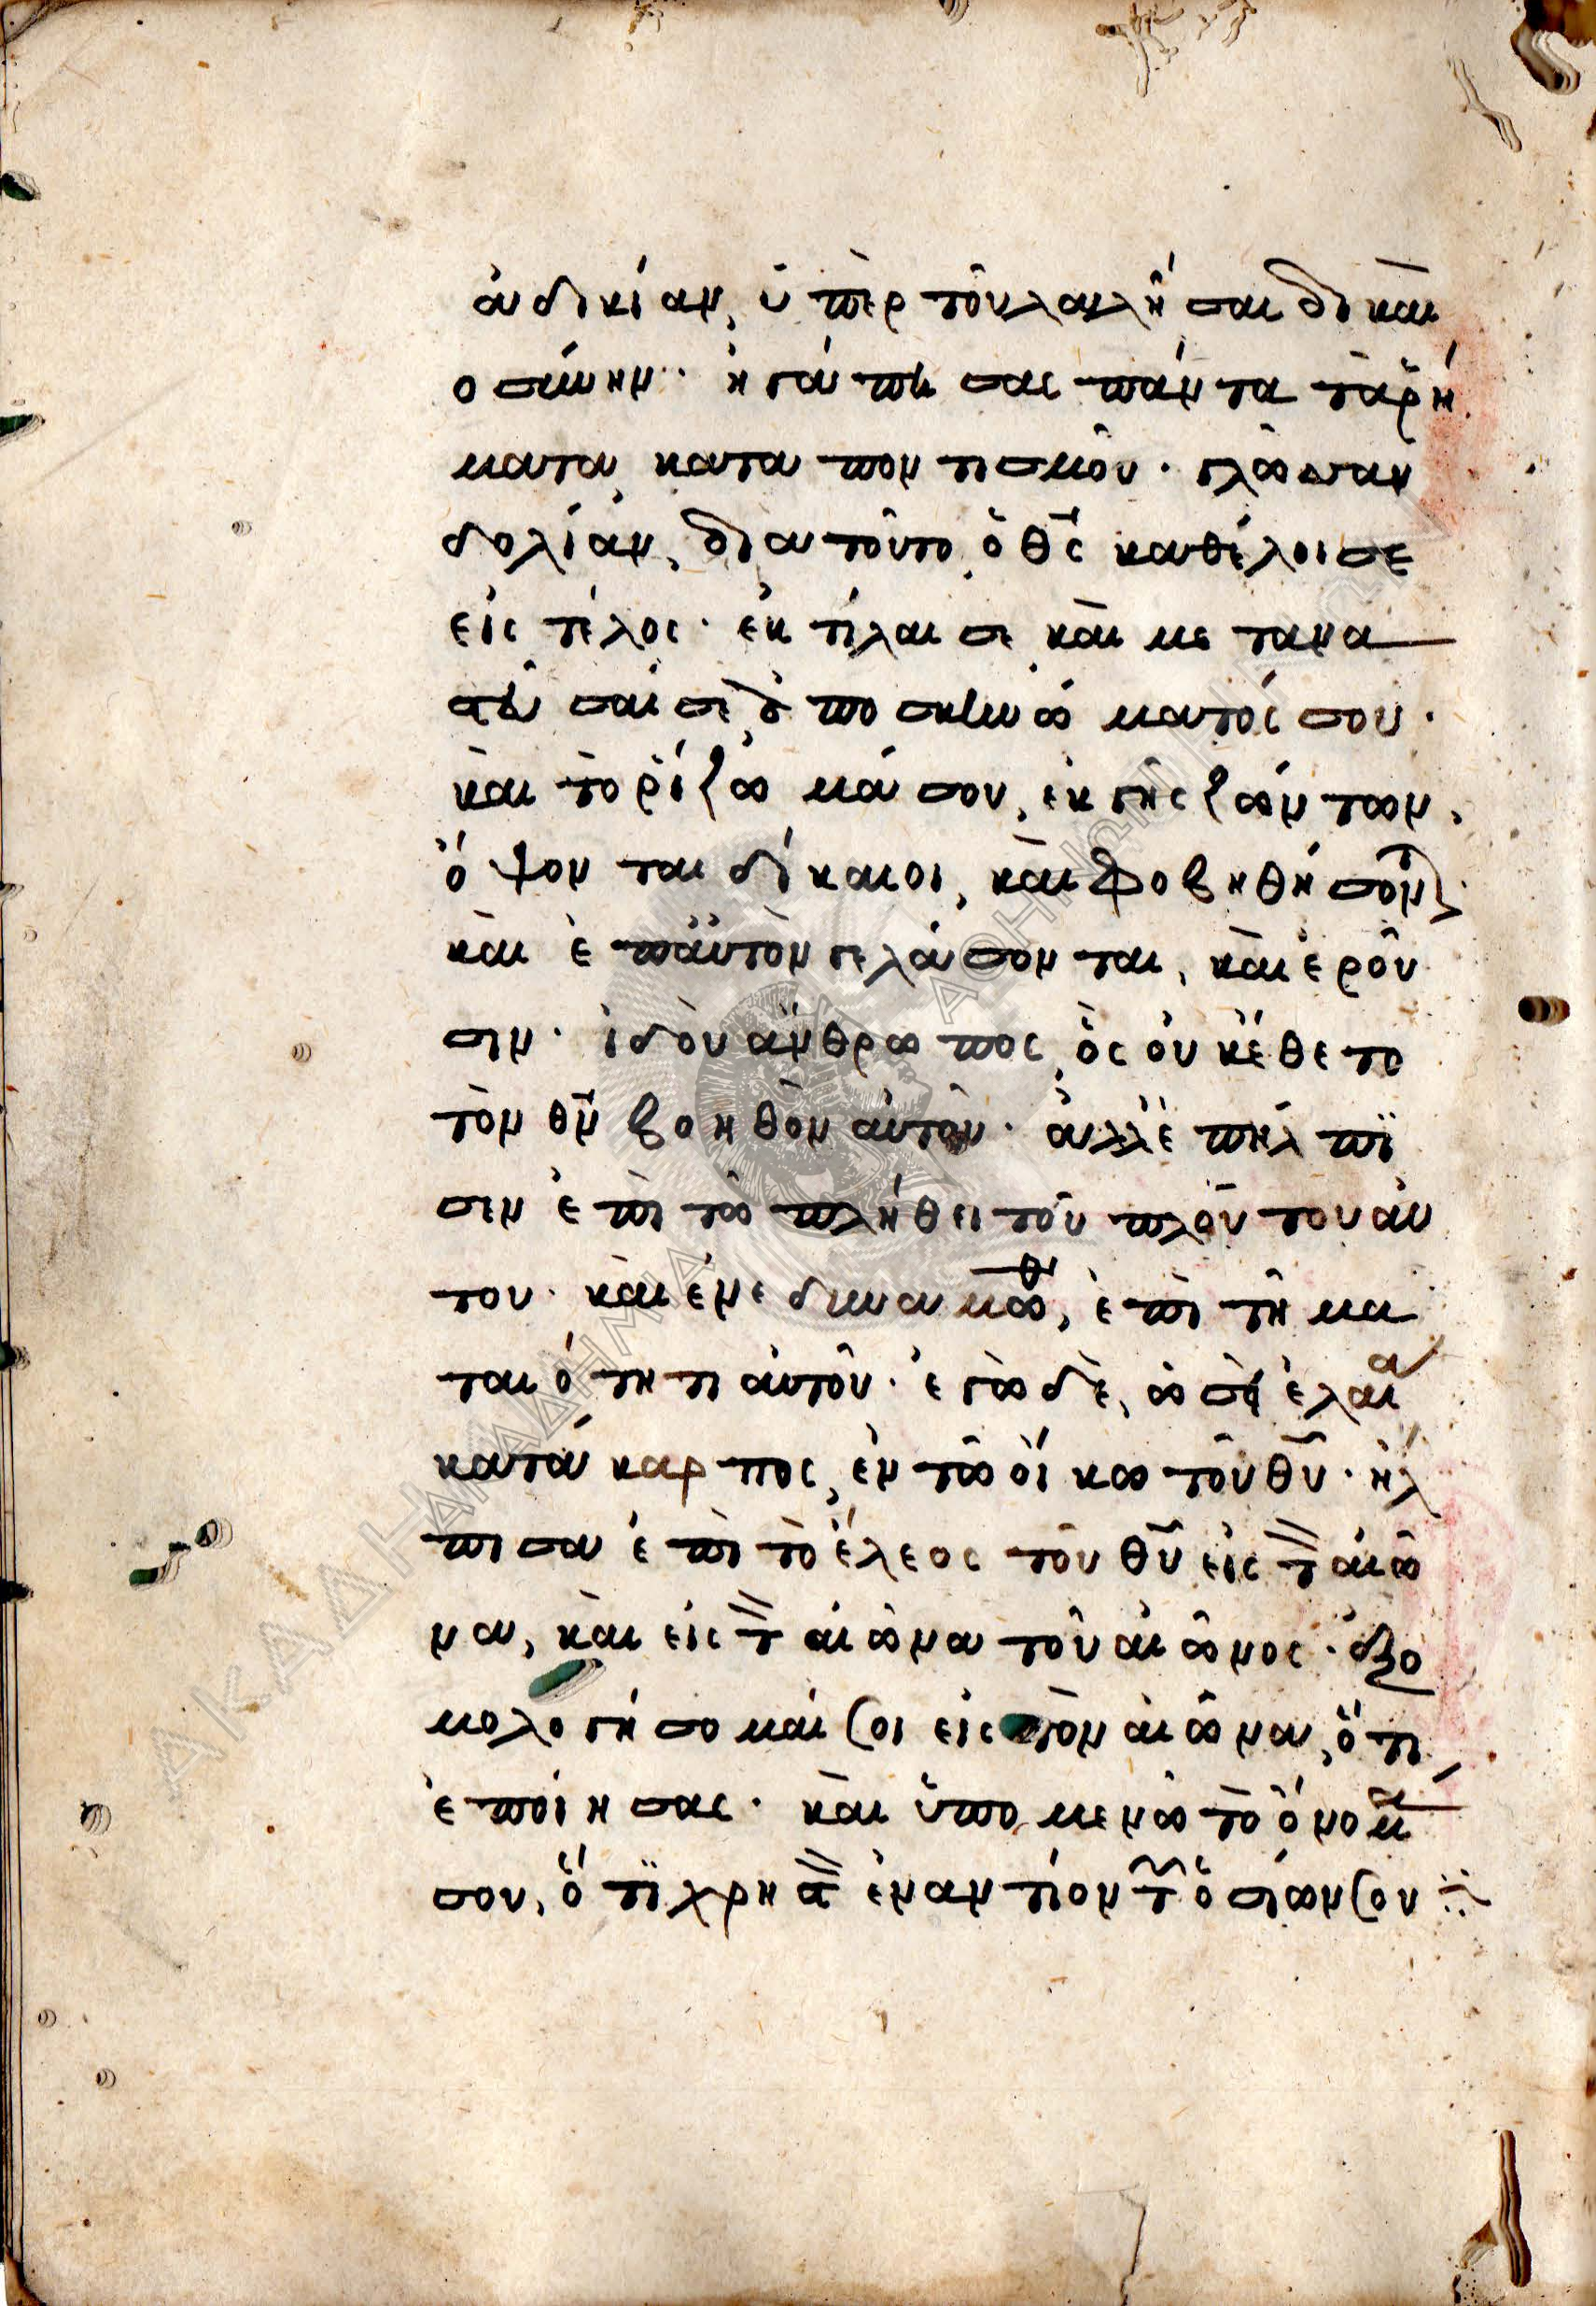 ἀδικίαν, ὑπὲρ τοῦ λαλῆσαι δικαι
οσύνην· ἠγάπησας πάντα τὰ ῥή
ματα καταποντισμοῦ· γλῶσσαν
δολίαν, διατοῦτο ὁ θς καθέλοι σε
εἰς τέλος· ἐκτίλαι σε καὶ μετανα
στεῦσαί σε ἀπο σκηνώματός σου·
καὶ τὸ ῥίζωμά σου, ἐκ γῆς ζώντων,
ὄψονται δίκαιοι, καὶ φοβηθήσοντ
καὶ ἐπαὐτὸν γελάσονται, καὶ ἐροῦ
σιν· ἰδοὺ ἄνθρωπος, ὃς οὐκ ἔθετο
τὸν θν βοηθὸν αὐτοῦ· ἀλλ' ἐπήλπι
σεν ἐπὶ τῶ πλήθει τοῦ πλούτου αὐ
του· καὶ ἐνεδυναμώθ, ἐπὶ τῆ μα
ταιότητι αὐτοῦ· ἐγὼ δὲ, ὡσεὶ ἐλαία
κατάκαρπος, ἐν τῶ οἴκω τοῦ θυ· ἤλ
πισα ἐπὶ τὸ ἔλεος τοῦ θυ εἰς τ αἰῶ
να, καὶ εἰς τ αἰῶνα τοῦ αἰῶνος· ἐξο
μολογήσομαί σοι εἰς τὸν αἰῶνα, ὅτι
ἐποίησας· καὶ ὑπομενῶ τὸ ὄνομα
σου, ὅτι χρηστ ἐναντίον τ ὁσίων σου
ΑΚΑΔΗΜΙΑ ΑΘΗΝΩΝ